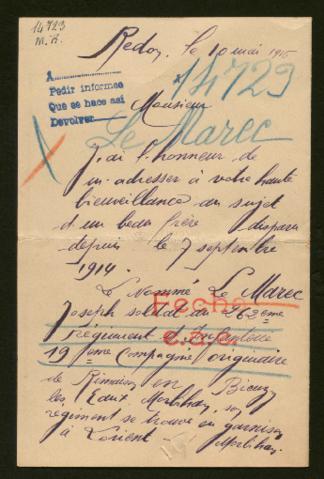 14723
M. R.
Redon, le 10 mai 1915
14723
A
Pedir informes
Que se hace asi
Devolver
Monsieur
Le Marec
J'ai l'honneur de
m'adresser à votre haute
bienveillance au sujet
d'un beau frère disparu
depuis le 7 septembre
1914.
Le Nommé Le Marec
Fecha
Joseph soldat du 262ème
régiment d'Infanterie
19ème Compagnie originaire
de en Bieuzy
les Eaux Morbihan, son
régiment se trouve en garnison
à Lorient Morbihan.